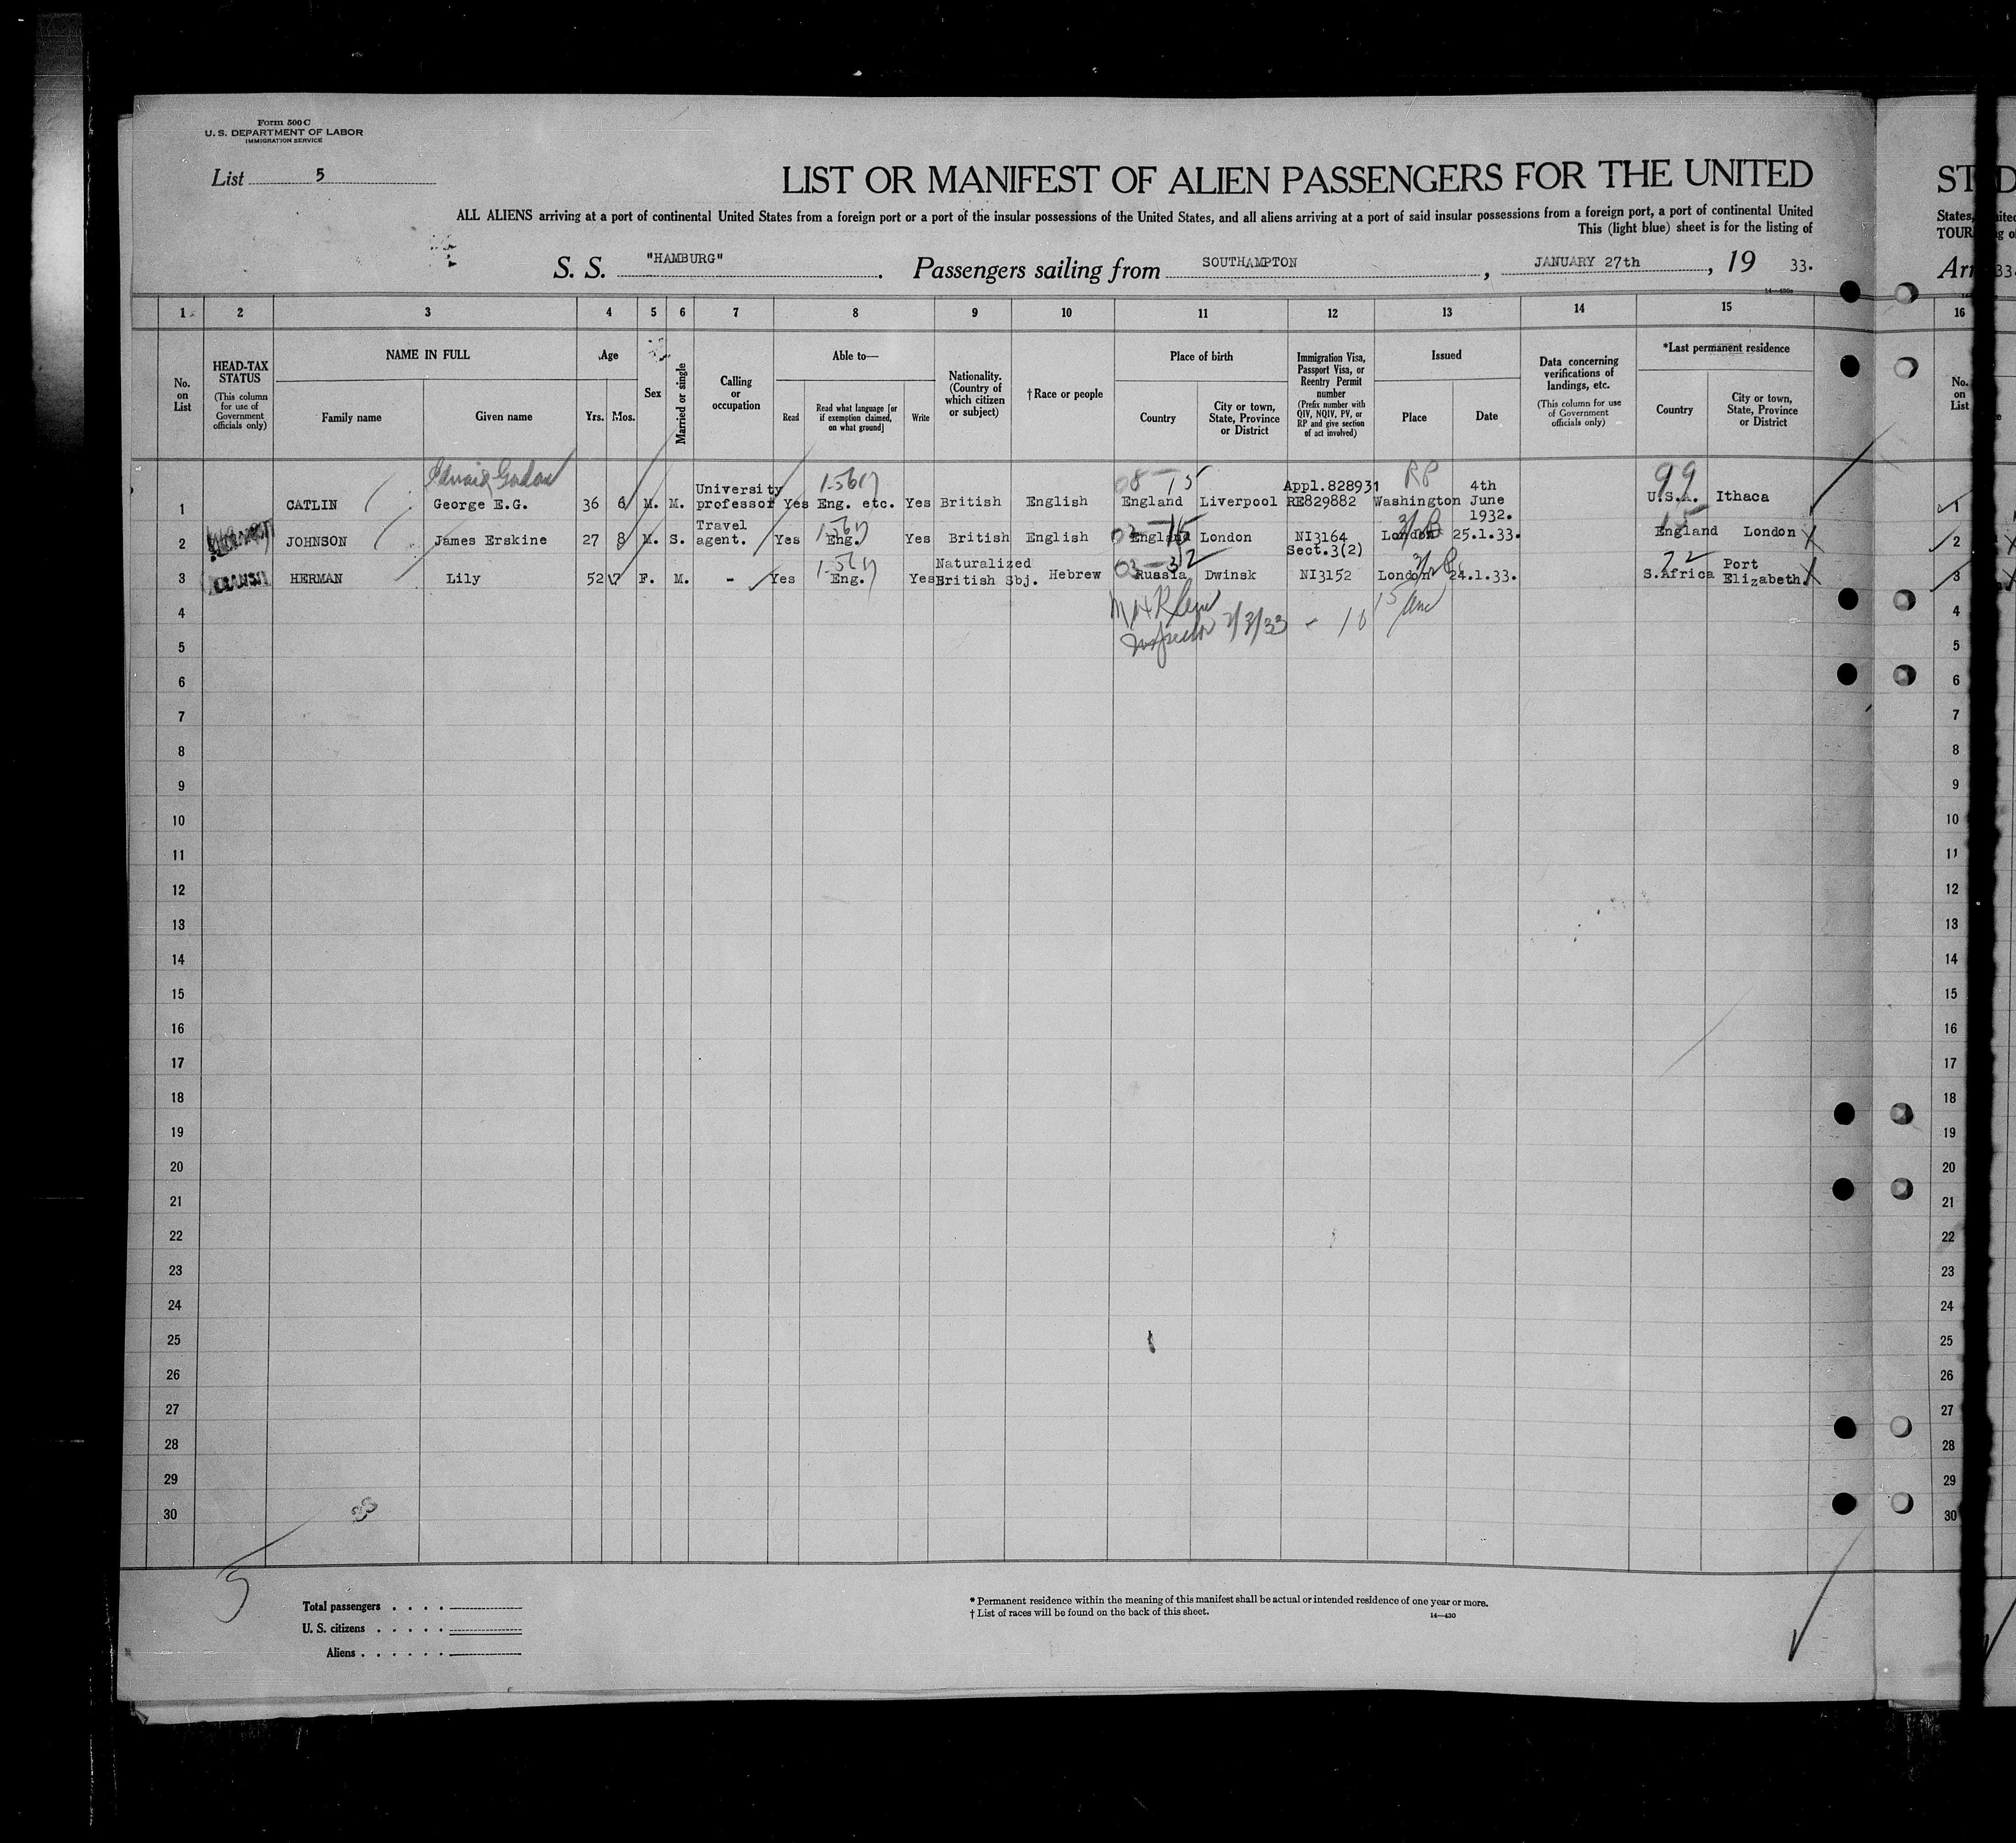 Form 500 C
U. S. DEPARTMENT OF LABOR
IMMIGRATION SERVICE
List 5
LIST OR MANIFEST OF ALIEN PASSENGERS FOR THE UNITED
ALL ALIENS arriving at a port of continental United States from a foreign port or a port of the insular possessions of the United States, and all aliens arriving at a port of said insular possessions from a foreign port, a port of continental United
This (light blue) sheet is for the listing of
S. S. "HAMBURG" Passengers sailing from SOUTHAMPTON, JANUARY 27th, 19 33.
14—430
1 2 3 4 5 6 7 8 9 10 11 12 13 14 15 16
No. on List
HEAD-TAX STATUS (This column for use of Government officials only)
NAME IN FULL
Family name
Given name
Age
Yrs. Mos.
Sex
Married or single
Calling or occupation
Able to—
Read
Read what language [or if exemption claimed, on what ground]
Write
Nationality. (Country of which citizen or subject)
†Race or people
Place of birth
Country
City or town, State, Province or District
Immigration Visa, Passport Visa, or Reentry Permit number (Prefix number with QIV, NQIV, PV, or RP and give section of act involved)
Issued
Place
Date
Data concerning verifications of landings, etc. (This column for use of Government officials only)
*Last permanent residence
Country
City or town, State, Province or District
No. on List
1 CATLIN George E.G. 36 6 M. M. University professor Yes Eng. etc. Yes British English England Liverpool Appl.828931 RE829882 RP Washington 4th June 1932. 99 U.S.A. Ithaca 1
2 JOHNSON James Erskine 27 8 M. S. Travel agent. Yes Eng. Yes British English England London NI3164 Sect.3(2) London 25.1.33. England London 2
3 HERMAN Lily 52 7 F. M. - Yes Eng. Yes Naturalized British Sbj. Hebrew Russia Dwinsk NI3152 London 24.1.33. S.Africa Port Elizabeth. 3
4 4
Inspector
5 5
6 6
7 7
8 8
9 9
10 10
11 11
12 12
13 13
14 14
15 15
16 16
17 17
18 18
19 19
20 20
21 21
22 22
23 23
24 24
25 25
26 26
27 27
28 28
29 29
30 30
5
Total passengers
U. S. citizens
Aliens
* Permanent residence within the meaning of this manifest shall be actual or intended residence of one year or more.
† List of races will be found on the back of this sheet.
14—430